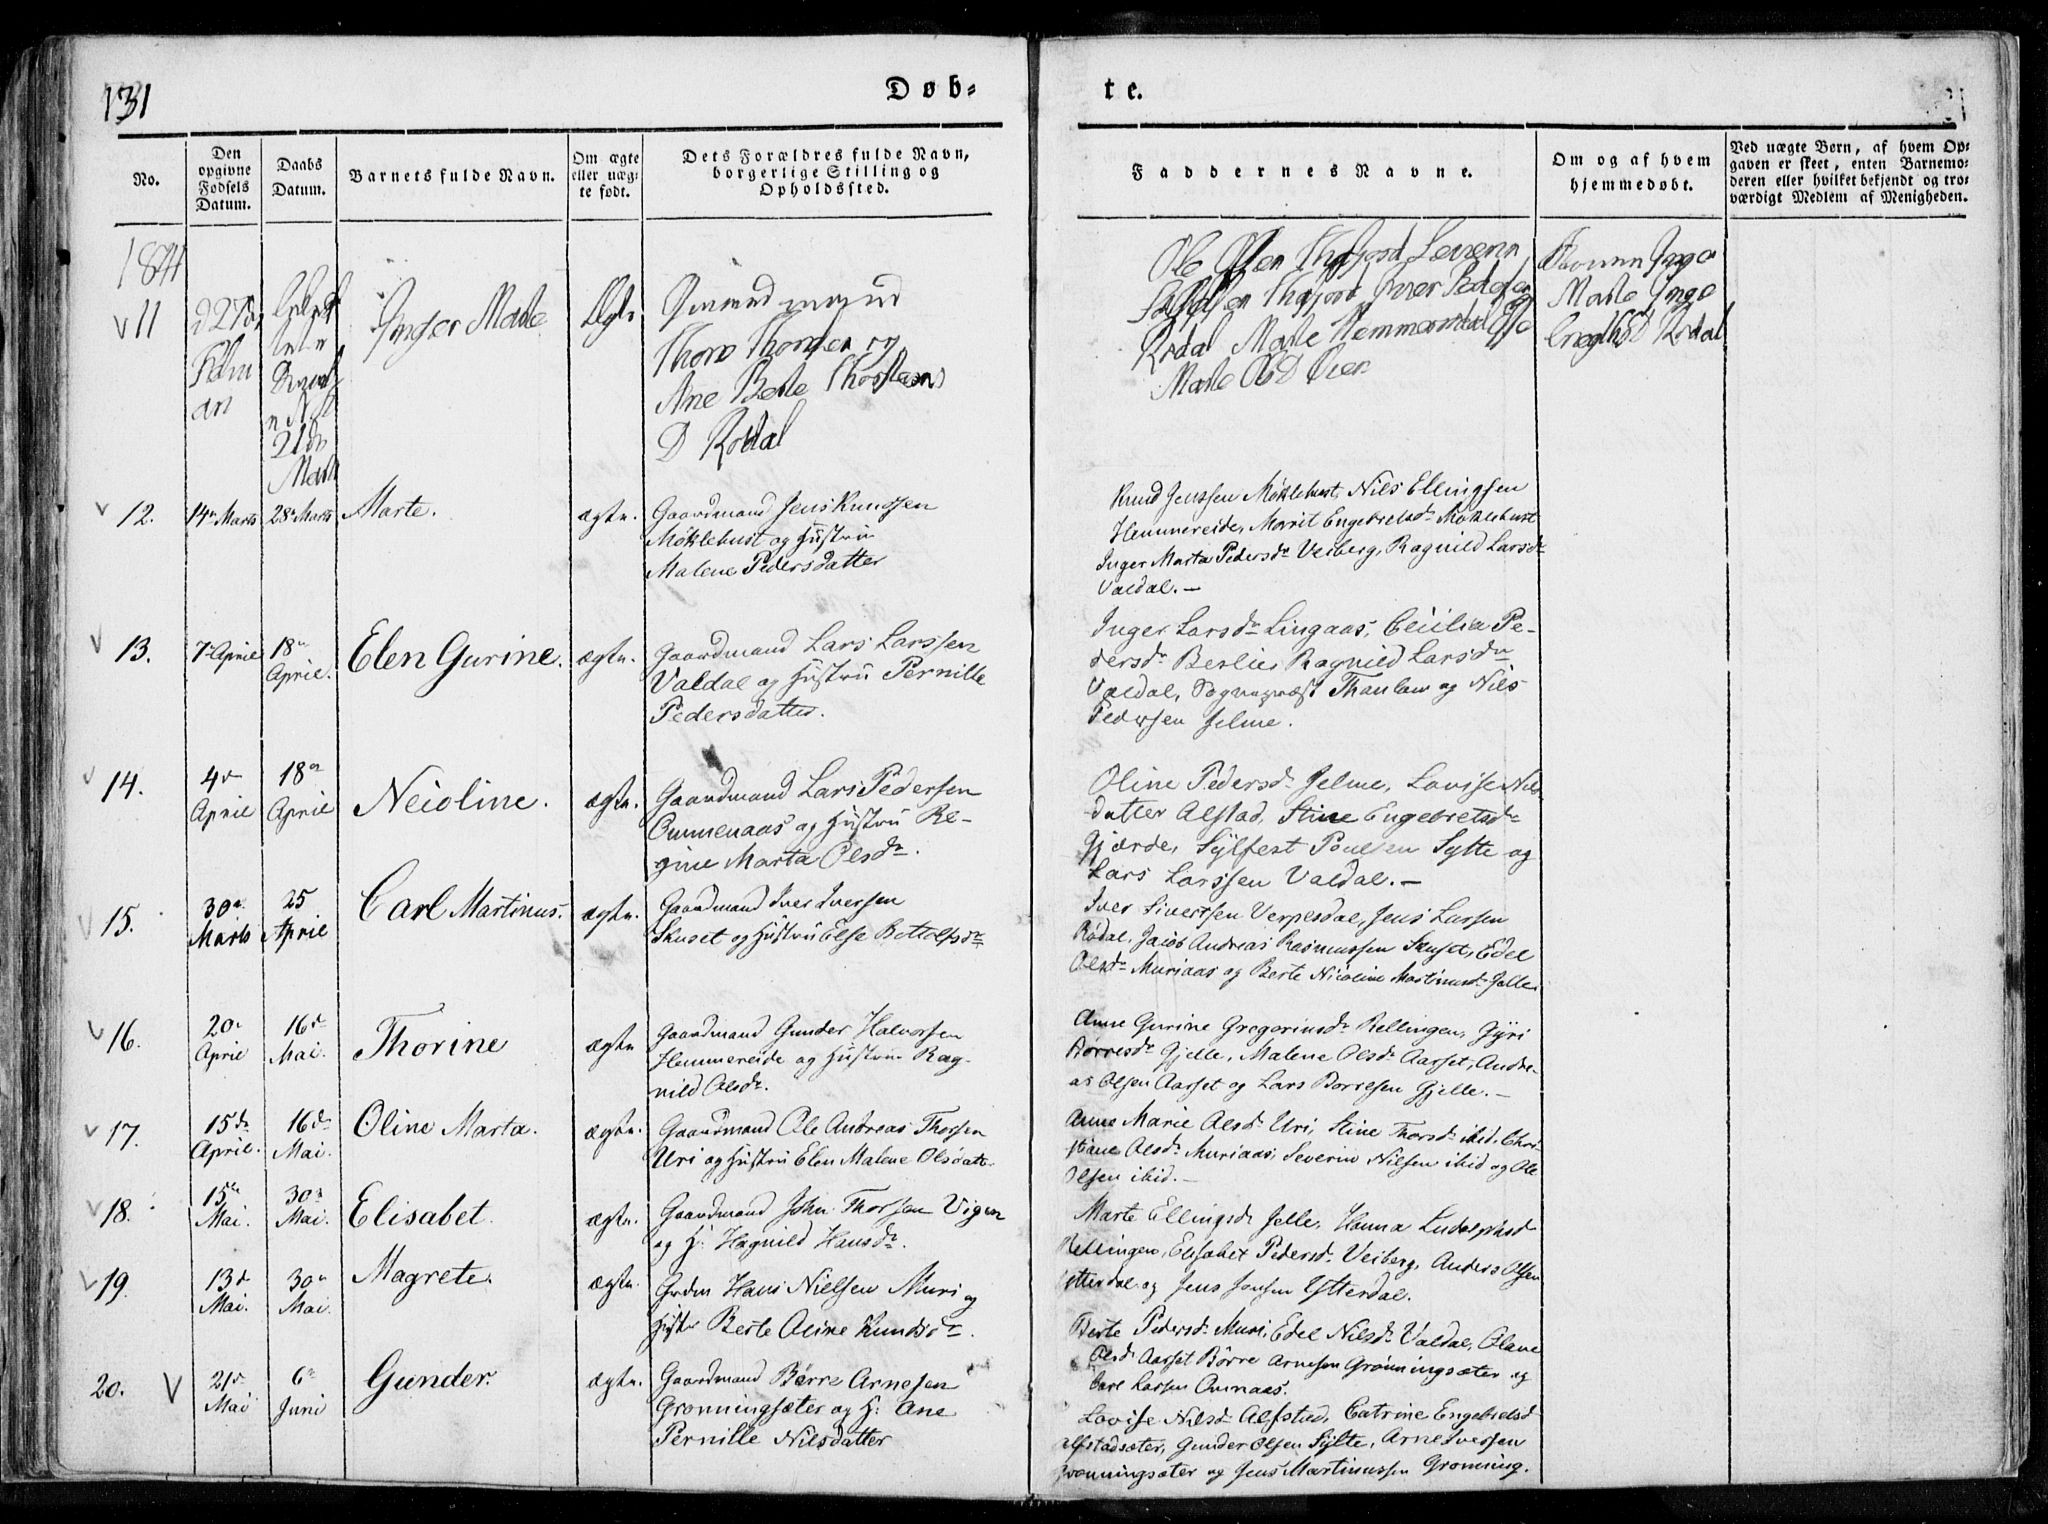 131
Døb-
te.
No.
Den
opgivne
Fødsels
Datum.
Daabs
Datum.
Barnets fulde Navn.
Om ægte
eller uæg-
te født.
Dets Forældres fulde Navn,
borgerlige Stilling og
Opholdssted.
Faddernes Navne.
Om og af hvem
hjemmedøbt.
Ved uægte Børn, af hvem Op-
gaven er skeet, enten Barnemo-
deren eller hvilket bekjendt og tro-
værdigt Medlem af Menigheden.
1841
11
Marte
Thore Thorsen og
Ane Berte
D Rødal
Ole Olsen
Iver Peders
Rødal Marte
Marte
Inger
Marte Inge
Rødal
12.
14de Marts
28de Marts
Marte.
ægte.
Gaardmand Jens Knudsen
Møklebust og Hustru
Malene Pedersdatter
Knud Jenssen Møklebust, Nils Ellingsen
Hemmereide, Marit Engebretsdr Møklebust
Inger Marta Pedersdr Veiberg, Ragnild Larsdr
Valdal. —
13.
7de April
18de
April.
Elen Gurine.
ægte.
Gaardmand Lars Larssen
Valdal og Hustru Pernille
Pedersdatter.
Inger Larsdr Lingaas, Cecilia Pe-
dersdr Berlie, Ragnild Larsdr
Valdal, Sognepræst Thaulow og Nils
Pedersen Jelme.
14.
4de
April
18de
April
Neioline.
ægte.
Gaardmand Lars Pedersen
Ommenaas og Hustru Re-
gine Marta Olsdr.
Oline Pedersdr Jelme, Lovise Nils-
datter Alstad, Stine Engebretsdr
Gjærde, Sylfest Poulsen Sylte og
Lars Larssen Valdal. —
15.
30de
Marts
25
April
Carl Martinus.
ægte.
Gaardmand Iver Iversen
Skuset og Hustru Else Bottolfsdr
Iver Sivertsen Verpesdal, Jens Larsen
Rødal, Jacob Andreas Rasmussen Skuset, Edel
Olsdr Muriaas og Berte Nicoline Martinusdr Jelle.
16.
20de
April
16de
Mai.
Thorine
ægte
Gaardmand Gunder Halvorsen
Hemmereide og Hustru Rag-
nild Olsdr.
Anne Gurine Gregoriusdr Rellingen, Gyri
Børresdr Gjelle, Malene Olsdr Aarset, Andre-
as Olsen Aarset og Lars Borresen Gjelle. —
17.
15de
April.
16de
Mai.
Oline Marta.
ægte.
Gaardmand Ole Andreas Thorsen
Uri og Hustru Elen Malene Olsdatr
Anne Marie Olsdr Uri, Stine Thorsdr ibid. Chri-
stiane Olsdr Muriaas, Severin Nilsen ibid og Ole
Olsen ibid. —
18.
15de
Mai.
30de
Mai.
Elisabet.
ægte.
Gaardmand John Thorsen Vigen
og H: Hagnild Hansdr.
Marte Ellingsdr Jelle, Hanna Ludolphsd
Rellingen, Elisabet Pedersdr Veiberg, Anders Olsen
Ytterdal og Jens Jonsen Ytterdal.
19.
13de
Mai.
30de
Mai.
Magrete.
ægte.
Grdm Hans Nielsen Muri og
Hustr Berte Oline Knudsdr.
Berte Pedersdr Muri, Edel Nilsdr Valdal, Olave
Olsdr Aarset Børre Arnesen Grønningsæter og
Carl Larsen Omnaas.
20.
21de
Mai
6te
Juni
Gunder.
ægte.
Gaardmand Børre Arnesen
Grønningsæter og H: Ane
Pernille Nilsdatter
Lovise Nilsdr Alfstad, Catrine Engebretsd
alfstadsæter, Gunder Olsen Sylte, Arne Iversen
Grønningsæter og Jens Martinussen Grønning.